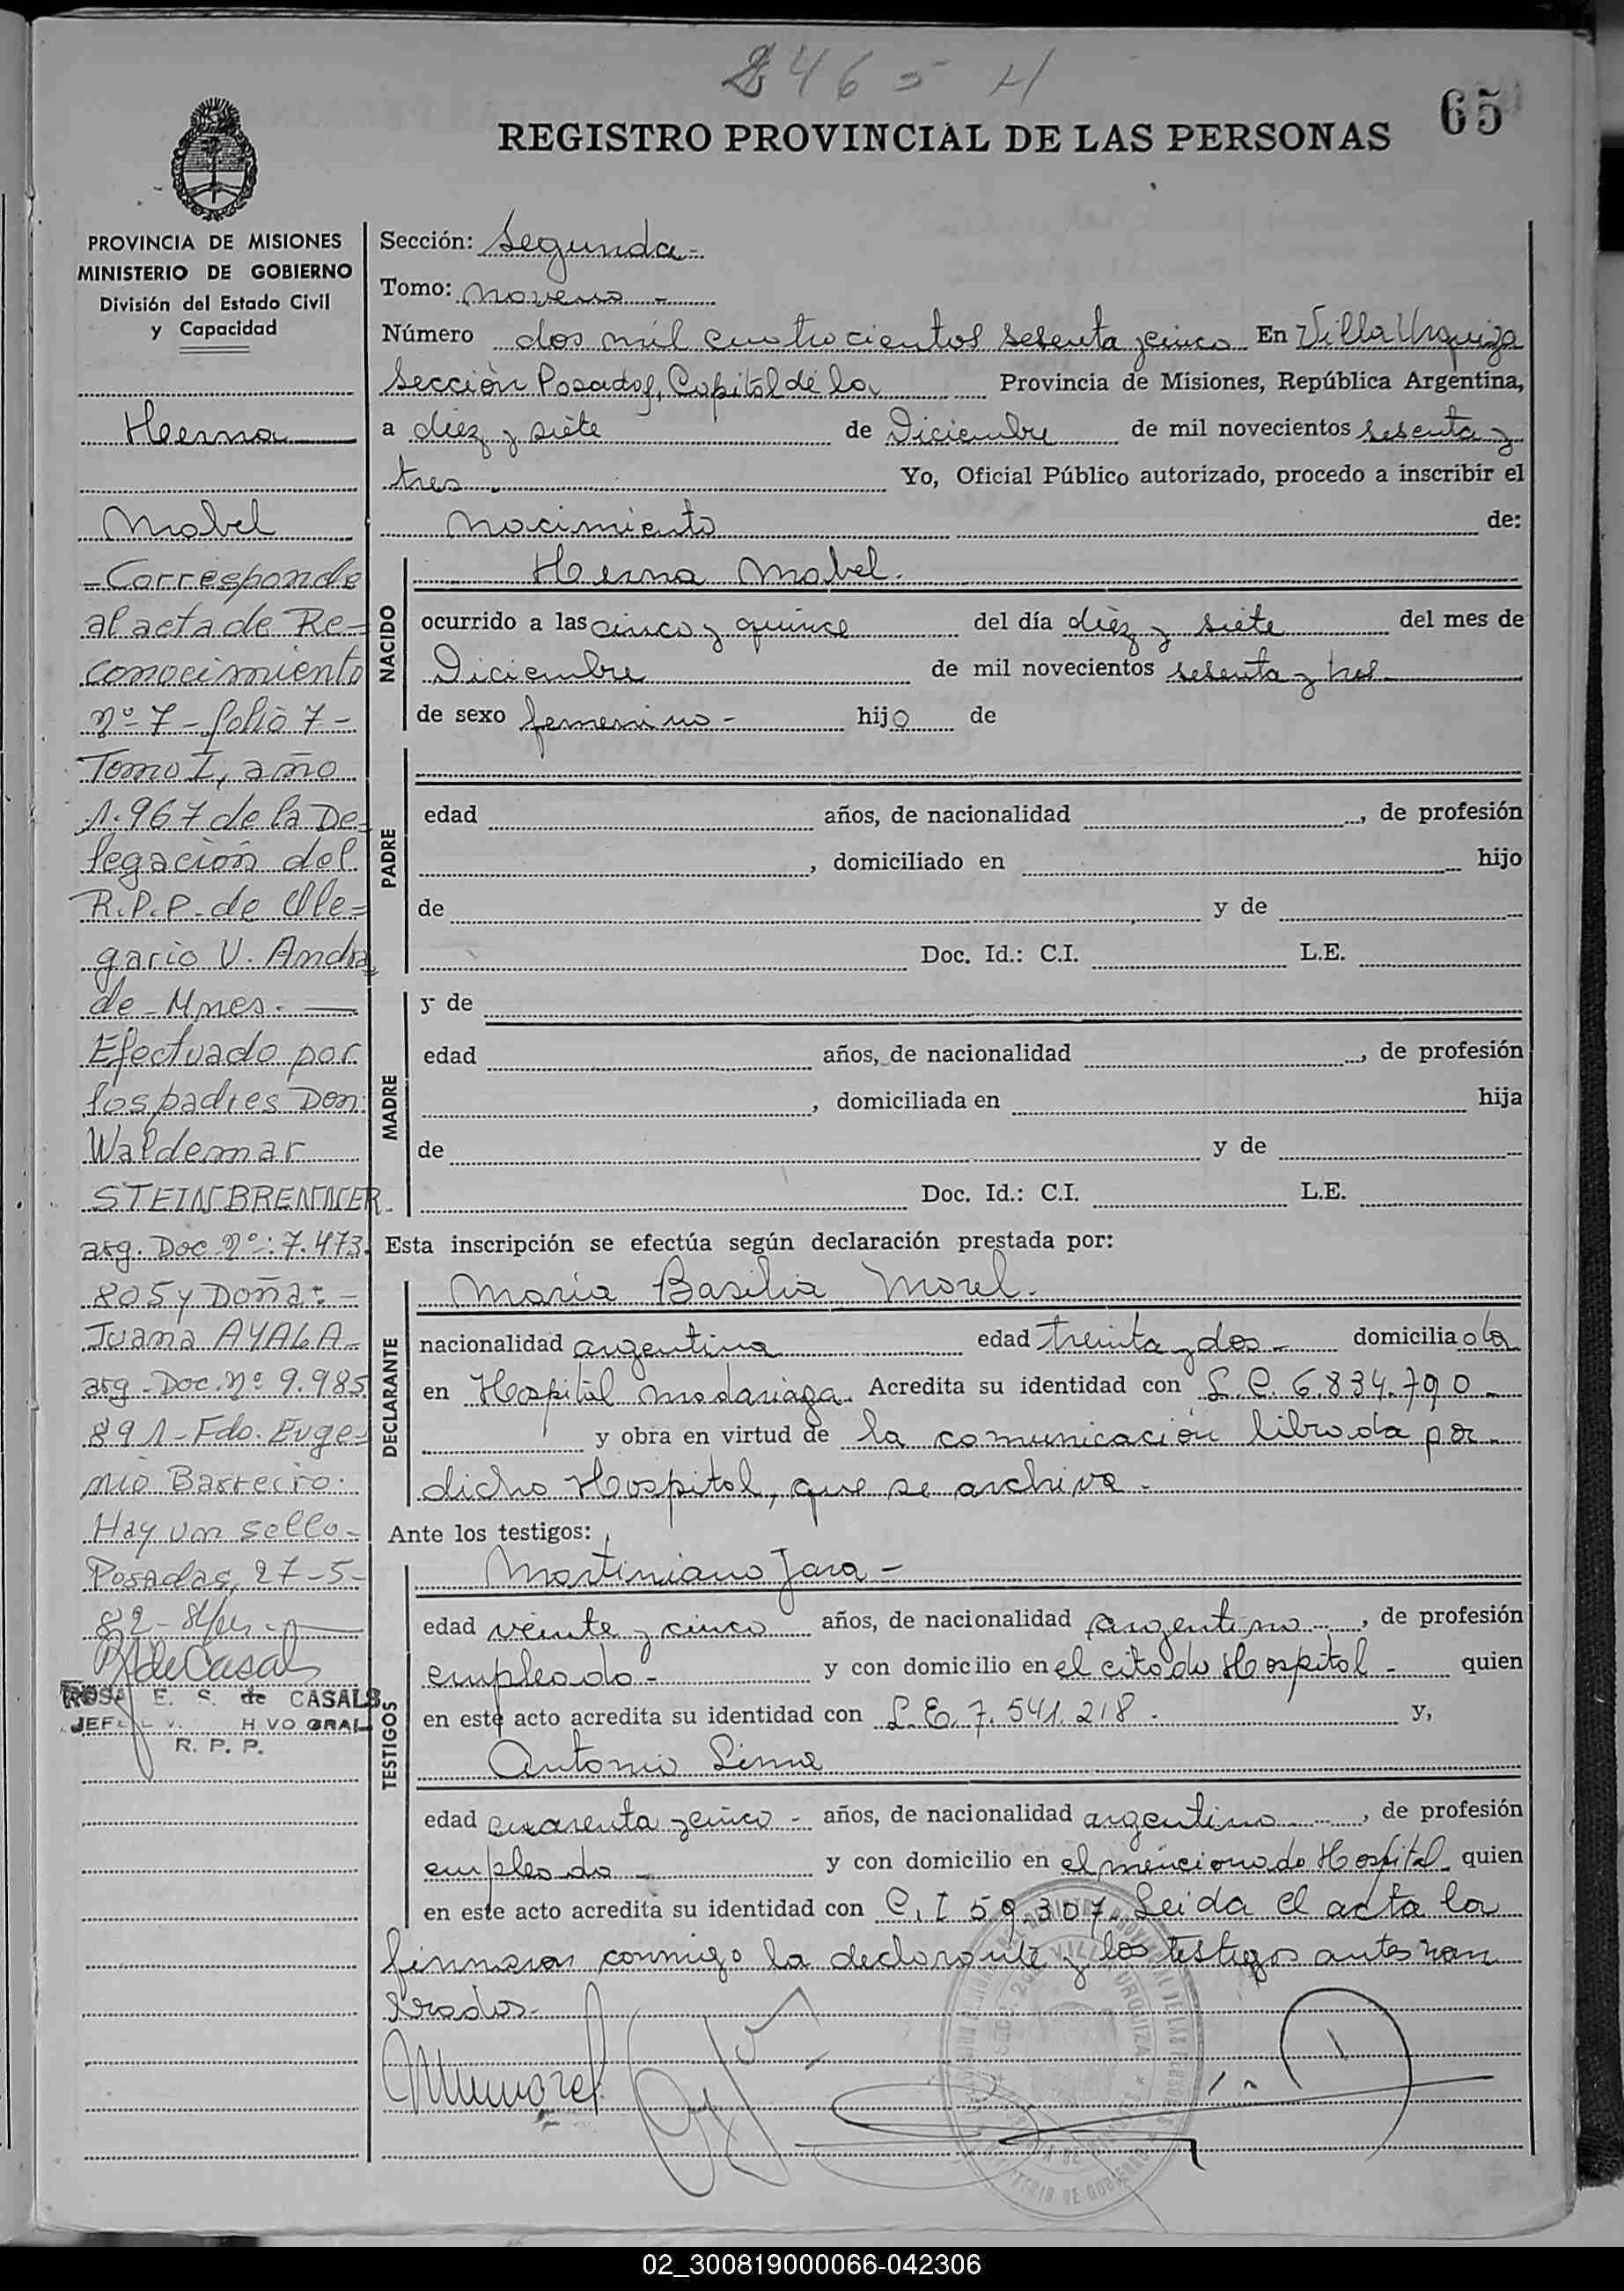 2465 H
65
REGISTRO PROVINCIAL DE LAS PERSONAS
PROVINCIA DE MISIONES
MINISTERIO DE GOBIERNO
División del Estado Civil
y Capacidad
Herna
Mabel
-Corresponde
al acta de Re-
conocimiento
nº 7 - folio 7 -
Tomo I, año
1.967 de la De-
legación del
R.P.P. de Ole-
gario V. Andra
de - Mnes. -
Efectuado por
los padres Don:
Waldemar
STEINBRENNER.
arg. Doc. Nº: 7.473.
805 y Doña: -
Juana AYALA -
arg - Doc. Nº 9.985
891 - Fdo. Euge-
nio Barreiro.
Hay un sello -
Posadas, 27-5-
82 -
R de Casals
ROSA E. S. de CASALS
JEF HIVO GRAL
R. P. P.
Sección: Segunda -
Tomo: Noveno -
Número dos mil cuatrocientos sesenta y cinco En Villa Urquiza
Sección Posadas, Capital de la Provincia de Misiones, República Argentina,
a diez y siete de Diciembre de mil novecientos sesenta y
tres Yo, Oficial Público autorizado, procedo a inscribir el
Nacimiento de:
NACIDO
Herna Mabel.
ocurrido a las cinco y quince del día diez y siete del mes de
Diciembre de mil novecientos sesenta y tres
de sexo femenino - hijo de
PADRE
edad años, de nacionalidad , de profesión
, domiciliado en hijo
de y de
Doc. Id.: C.I. L.E.
MADRE
y de
edad años, de nacionalidad , de profesión
, domiciliada en hija
de y de
Doc. Id.: C.I. L.E.
Esta inscripción se efectúa según declaración prestada por:
DECLARANTE
Maria Basilia Morel.
nacionalidad argentina edad treinta y dos - domicilia da
en Hospital Madariaga. Acredita su identidad con L.C. 6.834.790 -
y obra en virtud de la comunicación librada por
dicho Hospital, que se archiva -
Ante los testigos:
TESTIGOS
Martiniano Jara -
edad veinte y cinco años, de nacionalidad argentino , de profesión
empleado - y con domicilio en el citado Hospital - quien
en este acto acredita su identidad con L.E. 7.541.218 - y,
Antonio Lima
edad cuarenta y cinco - años, de nacionalidad argentino , de profesión
empleado - y con domicilio en el mencionado Hospital quien
en este acto acredita su identidad con C.I 59.307. Leida el acta la
firmaron conmigo la declarante y los testigos antes nom
brados -
MMorel
02_300819000066-042306